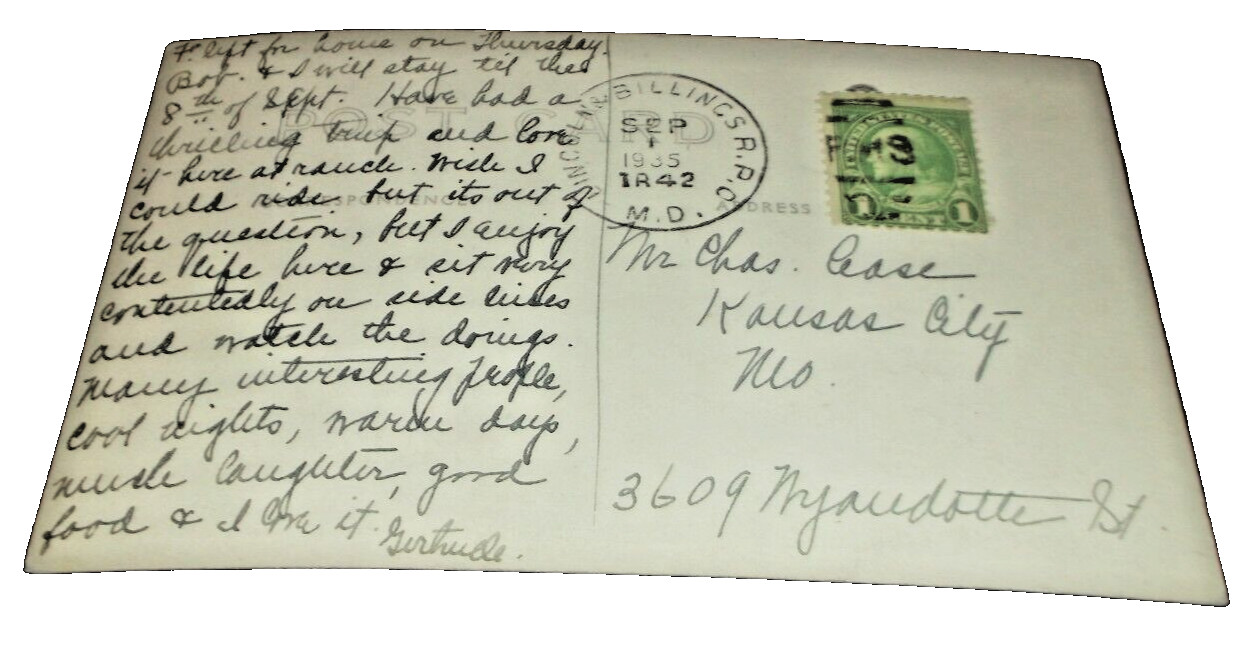 F. left for home on Thursday.
Bob. & I will stay til the
8th of Sept. Have had a
thrilling trip and love
it here at ranch. Wish I
could ride but its out of
the question, but I enjoy
the life here & sit very
contentedly on side lines
and watch the doings.
Many interesting people,
cool nights, warm days,
much laughter, good
food & I love it.
Gertrude.
POST CARD
CORRESPONDENCE
ADDRESS
LINCOLN & BILLINGS R.P.O.
SEP
1
1935
TR42
M.D.
1 CENT 1
Mr Chas. Case
Kansas City
Mo.
3609 Wyandotte St.